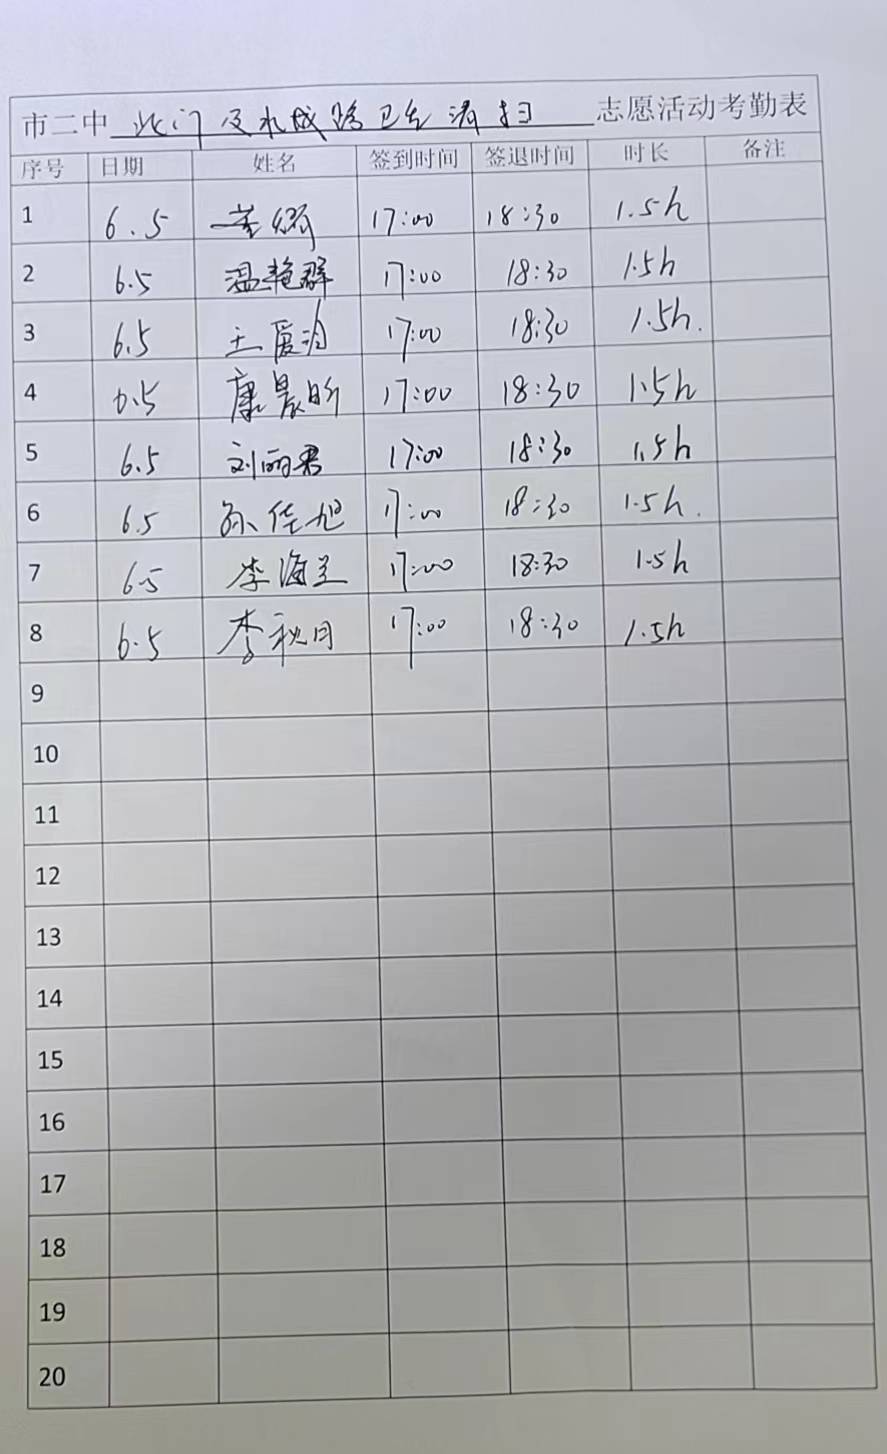 市二中 北门及水城路卫生清扫 志愿活动考勤表
序号 日期 姓名 签到时间 签退时间 时长 备注
1 6.5 17:00 18:30 1.5h
2 6.5 温艳群 17:00 18:30 1.5h
3 6.5 王 17:00 18:30 1.5h.
4 6.5 康晨昕 17:00 18:30 1.5h
5 6.5 刘丽君 17:00 18:30 1.5h
6 6.5 孙佳旭 17:00 18:30 1.5h.
7 6.5 李海兰 17:00 18:30 1.5h
8 6.5 李秋月 17:00 18:30 1.5h
9
10
11
12
13
14
15
16
17
18
19
20